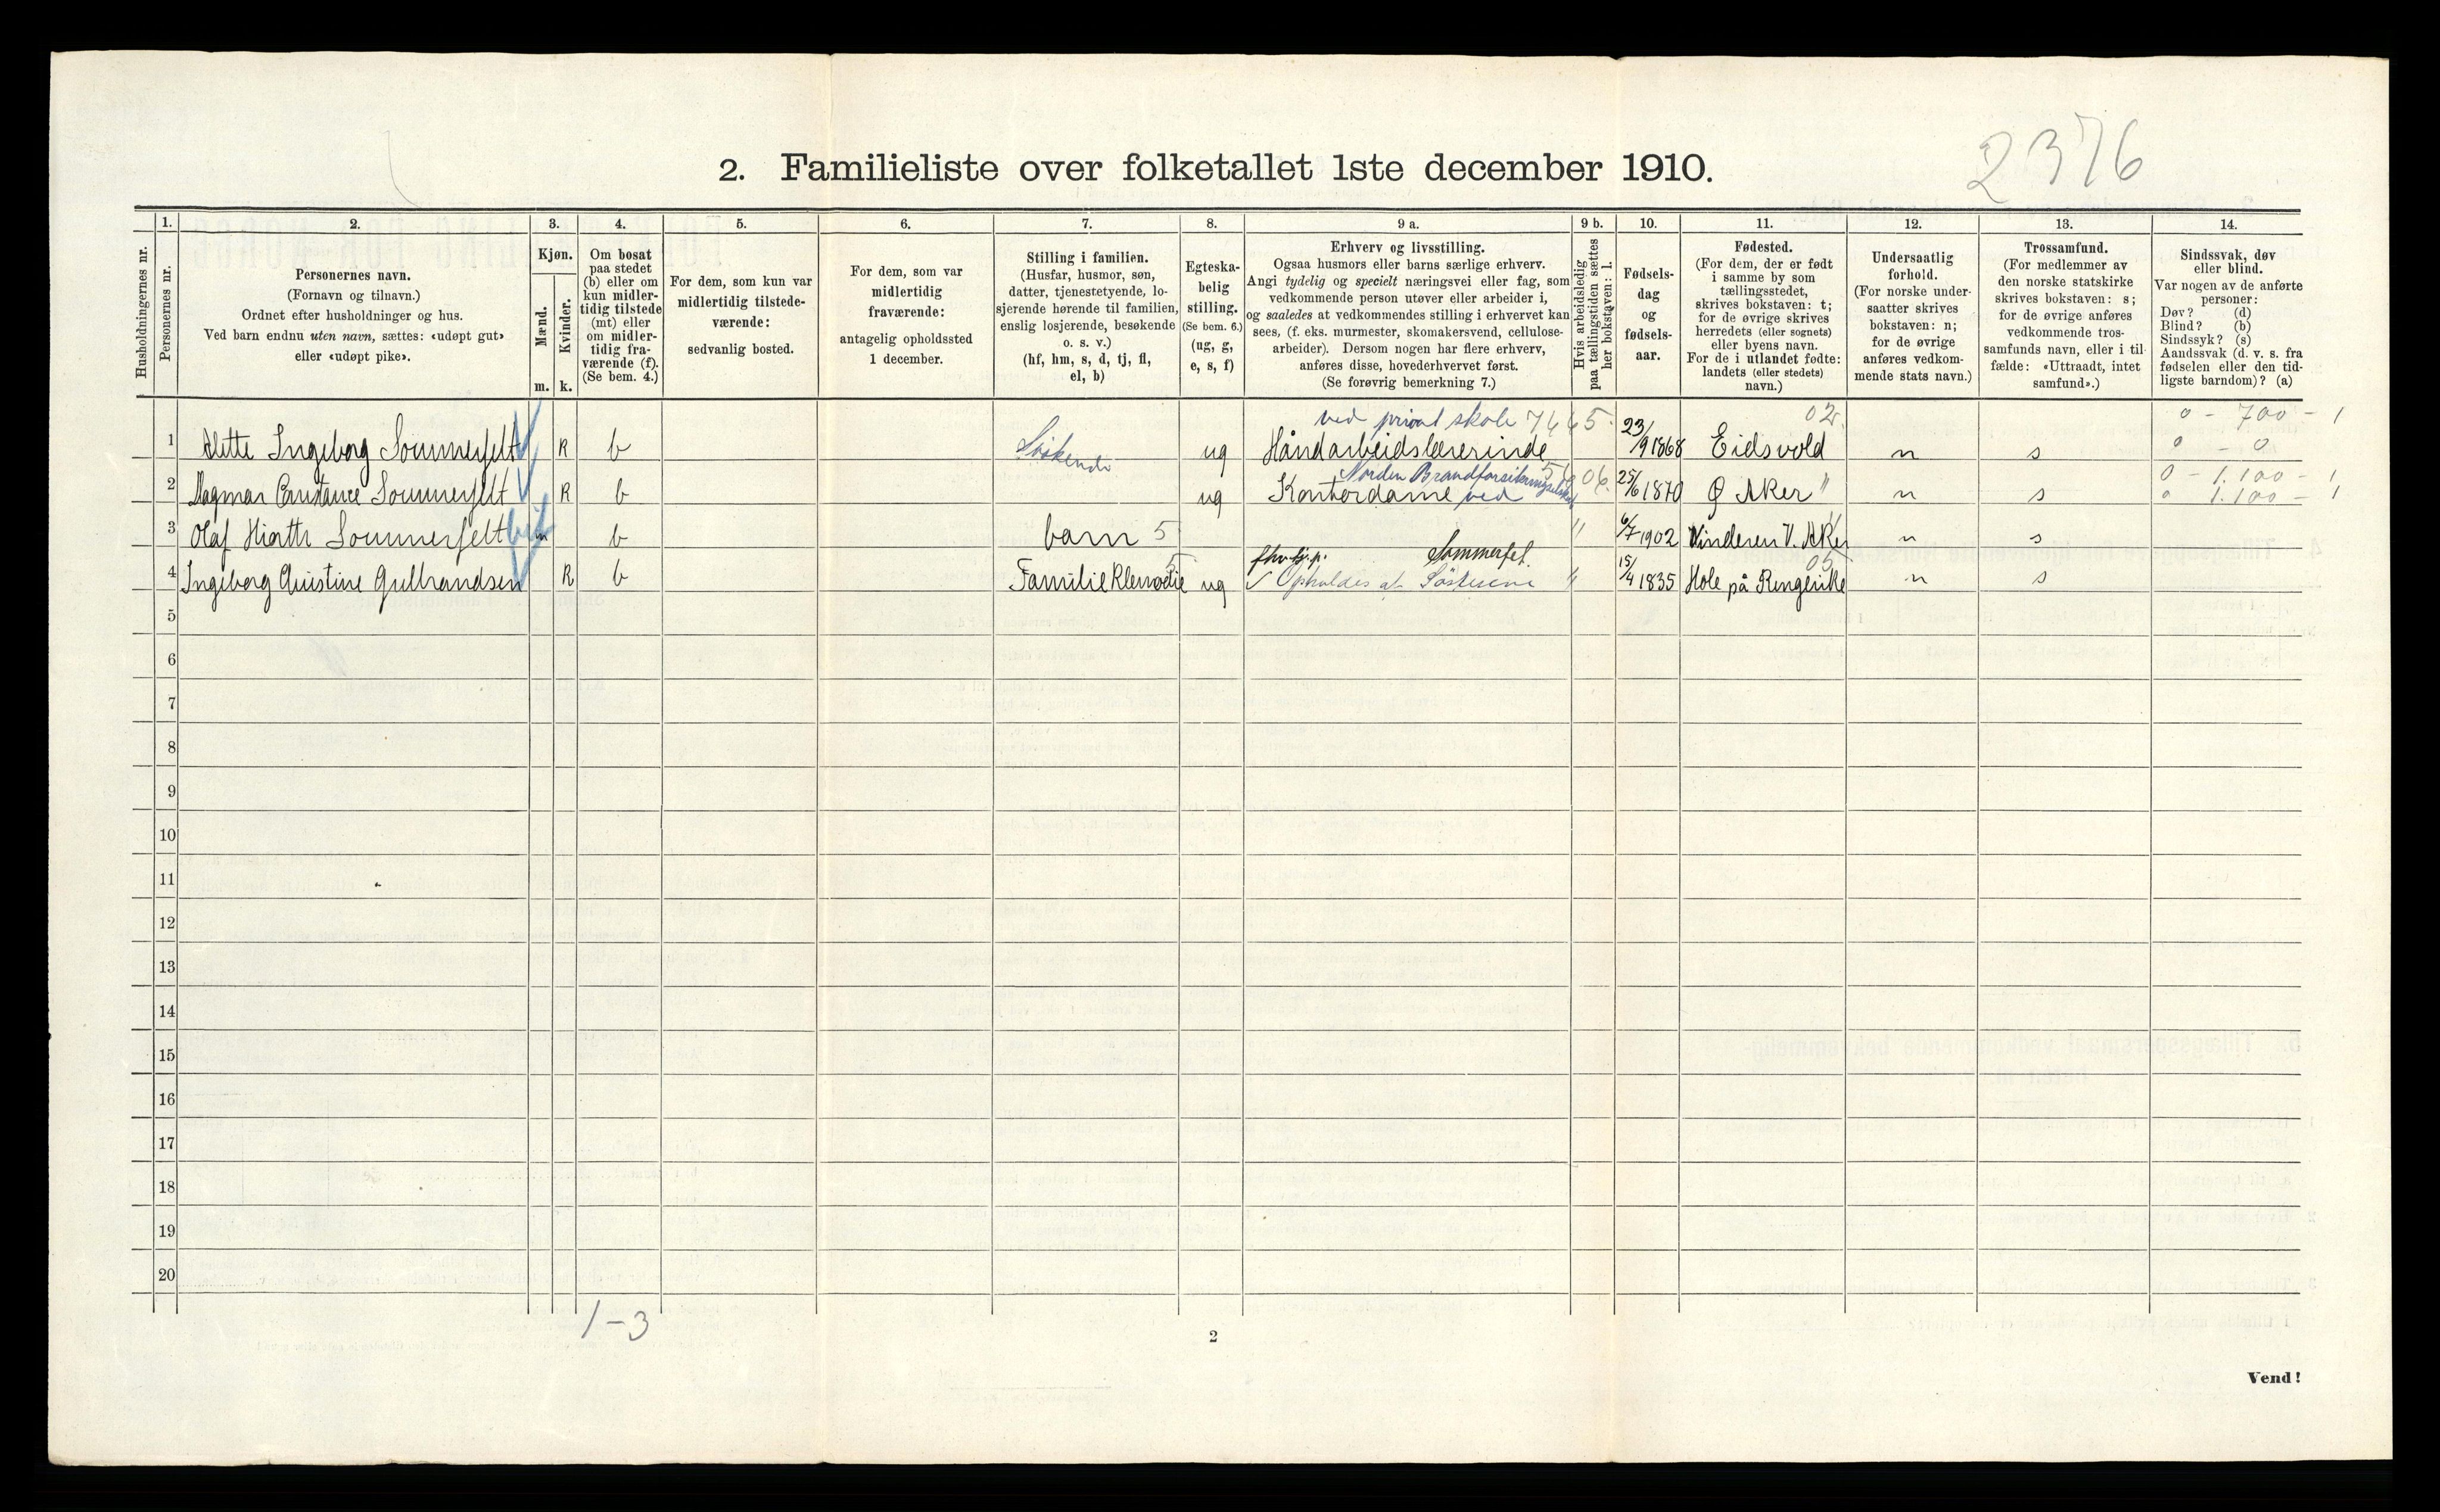 2376
2. Familieliste over folketallet 1ste december 1910.
Husholdningernes nr.
1. Personernes nr.
2. Personernes navn.
(Fornavn og tilnavn.)
Ordnet efter husholdninger og hus.
Ved barn endnu uten navn, sættes: «udøpt gut»
eller «udøpt pike».
3. Kjøn.
Mænd. m.
Kvinder. k.
4. Om bosat
paa stedet
(b) eller om
kun midler-
tidig tilstede
(mt) eller
om midler-
tidig fra-
værende (f).
(Se bem. 4.)
5. For dem, som kun var
midlertidig tilstede-
værende:
sedvanlig bosted.
6. For dem, som var
midlertidig
fraværende:
antagelig opholdssted
1 december.
7. Stilling i familien.
(Husfar, husmor, søn,
datter, tjenestetyende, lo-
sjerende hørende til familien,
enslig losjerende, besøkende
o. s. v.)
(hf, hm, s, d, tj, fl,
el, b)
8. Egteska-
belig
stilling.
(Se bem. 6.)
(ug, g,
e, s, f)
9 a. Erhverv og livsstilling.
Ogsaa husmors eller barns særlige erhverv.
Angi tydelig og specielt næringsvei eller fag, som
vedkommende person utøver eller arbeider i,
og saaledes at vedkommendes stilling i erhvervet kan
sees, (f. eks. murmester, skomakersvend, cellulose-
arbeider). Dersom nogen har flere erhverv,
anføres disse, hovederhvervet først.
(Se forøvrig bemerkning 7.)
9 b. Hvis arbeidsledig
paa tællingstiden sættes
her bokstaven: l.
10. Fødsels-
dag
og
fødsels-
aar.
11. Fødested.
(For dem, der er født
i samme by som
tællingsstedet,
skrives bokstaven: t;
for de øvrige skrives
herredets (eller sognets)
eller byens navn.
For de i utlandet fødte:
landets (eller stedets)
navn.)
12. Undersaatlig
forhold.
(For norske under-
saatter skrives
bokstaven: n;
for de øvrige
anføres vedkom-
mende stats navn.)
13. Trossamfund.
(For medlemmer av
den norske statskirke
skrives bokstaven: s;
for de øvrige anføres
vedkommende tros-
samfunds navn, eller i til-
fælde: «Uttraadt, intet
samfund».)
14. Sindssvak, døv
eller blind.
Var nogen av de anførte
personer:
Døv? (d)
Blind? (b)
Sindssyk? (s)
Aandssvak (d. v. s. fra
fødselen eller den tid-
ligste barndom)? (a)
ved privat skole 02 0 - 700 - 1
1 Alette Ingeborg Sommerfelt K b Søskende ug Håndarbeidslærerinde 23/9 1868 Eidsvold n s 0 - 0
Norden Brandforsikringselskab 06. 0 - 1.100 - 1
2 Dagmar Constance Sommerfelt K b ug Kontordame ved 25/6 1870 Ø Aker " n s 0 1.100 - 1
3 Olaf Hiorth Sommerfelt m b barn 5 " 6/7 1902 Vinderen V. Aker n s
fhv. tj.p. Sommerfet. 05
4 Ingeborg Christine Gulbrandsen K b Familie Klenodie 5 ug Opholdes af Søstrene " 15/4 1835 Hole på Ringerike n s
5
6
7
8
9
10
11
12
13
14
15
16
17
18
19
20
1-3
2
Vend!